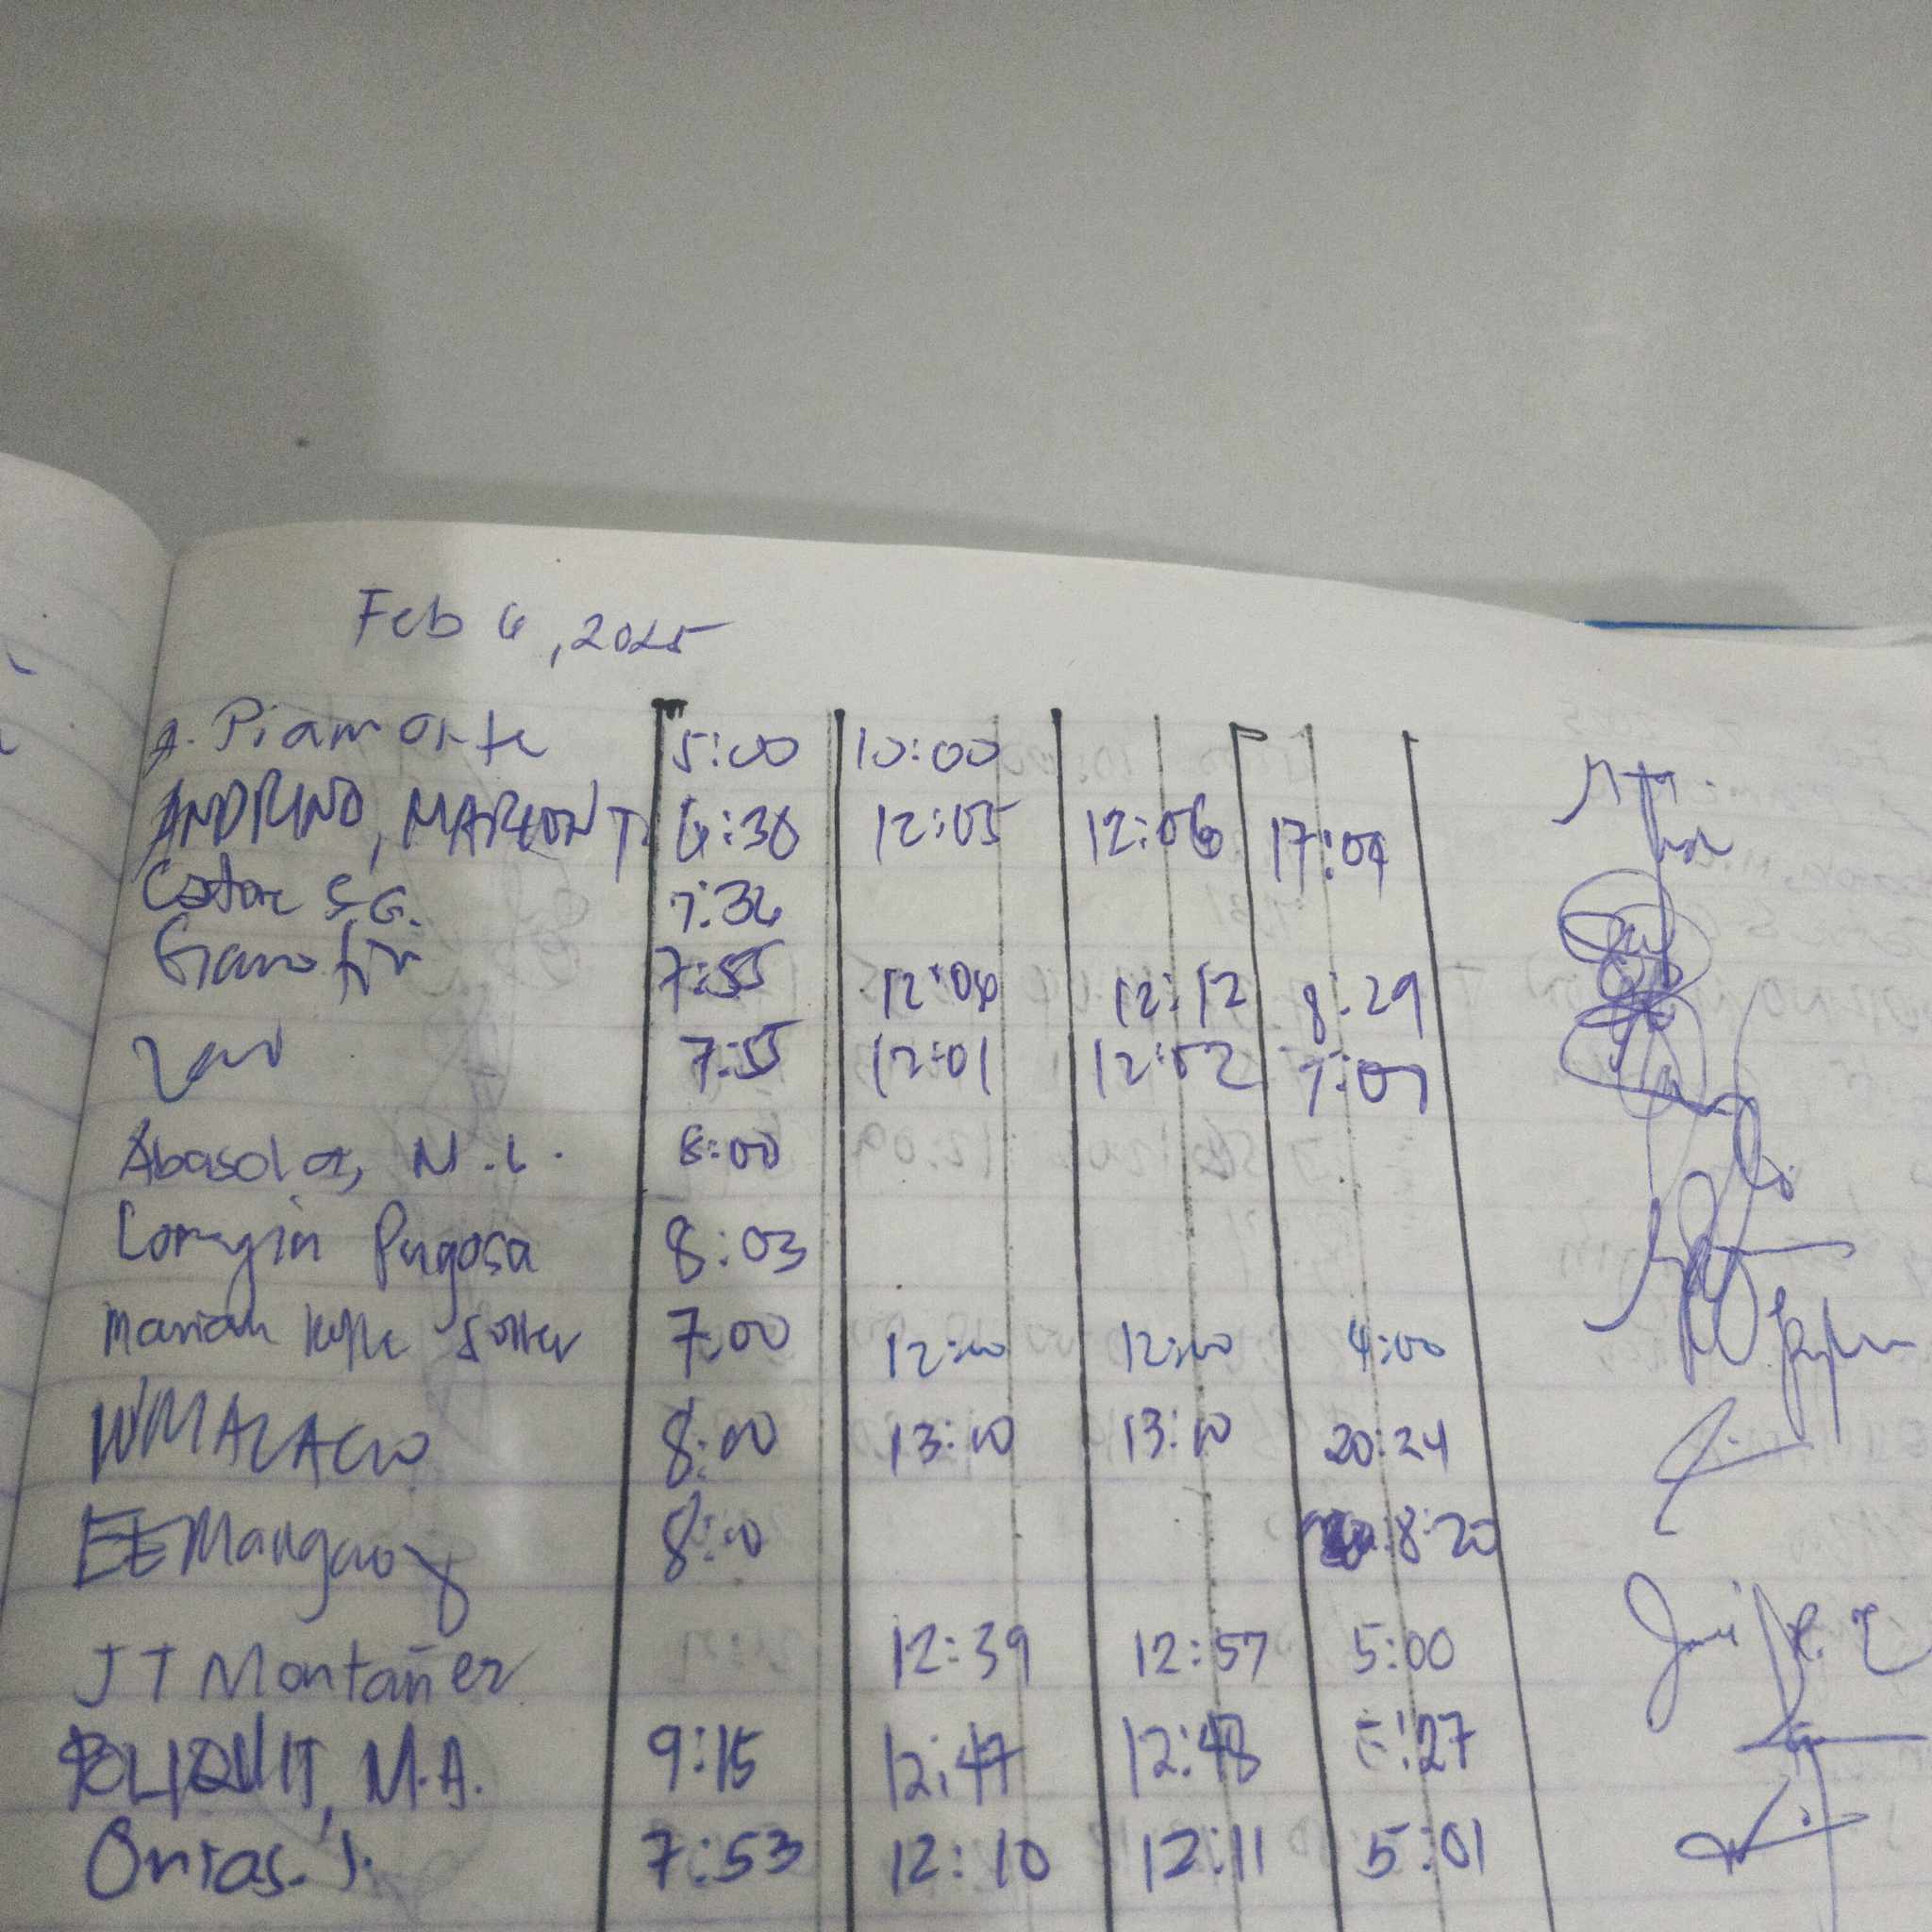 Feb 6, 2025
A. Piamonte 5:00 10:00
ANDRINO, MARLON T. 6:30 12:05 12:06 17:09
S.G. 7:36
7:55 12:06 12:12 8:29
7:55 12:01 12:02 7:07
Abasola, N.L. 8:00
Loregin Pugosa 8:03
Mariah Kyle Soller 7:00 12:00 12:00 4:00
8:00 13:00 13:10 20:24
EE Mangaoy 8:00 8:20
JT Montañez 12:39 12:57 5:00
POLIQUIT, M.A. 9:15 12:47 12:48 5:27
Onias. J. 7:53 12:10 12:11 5:01